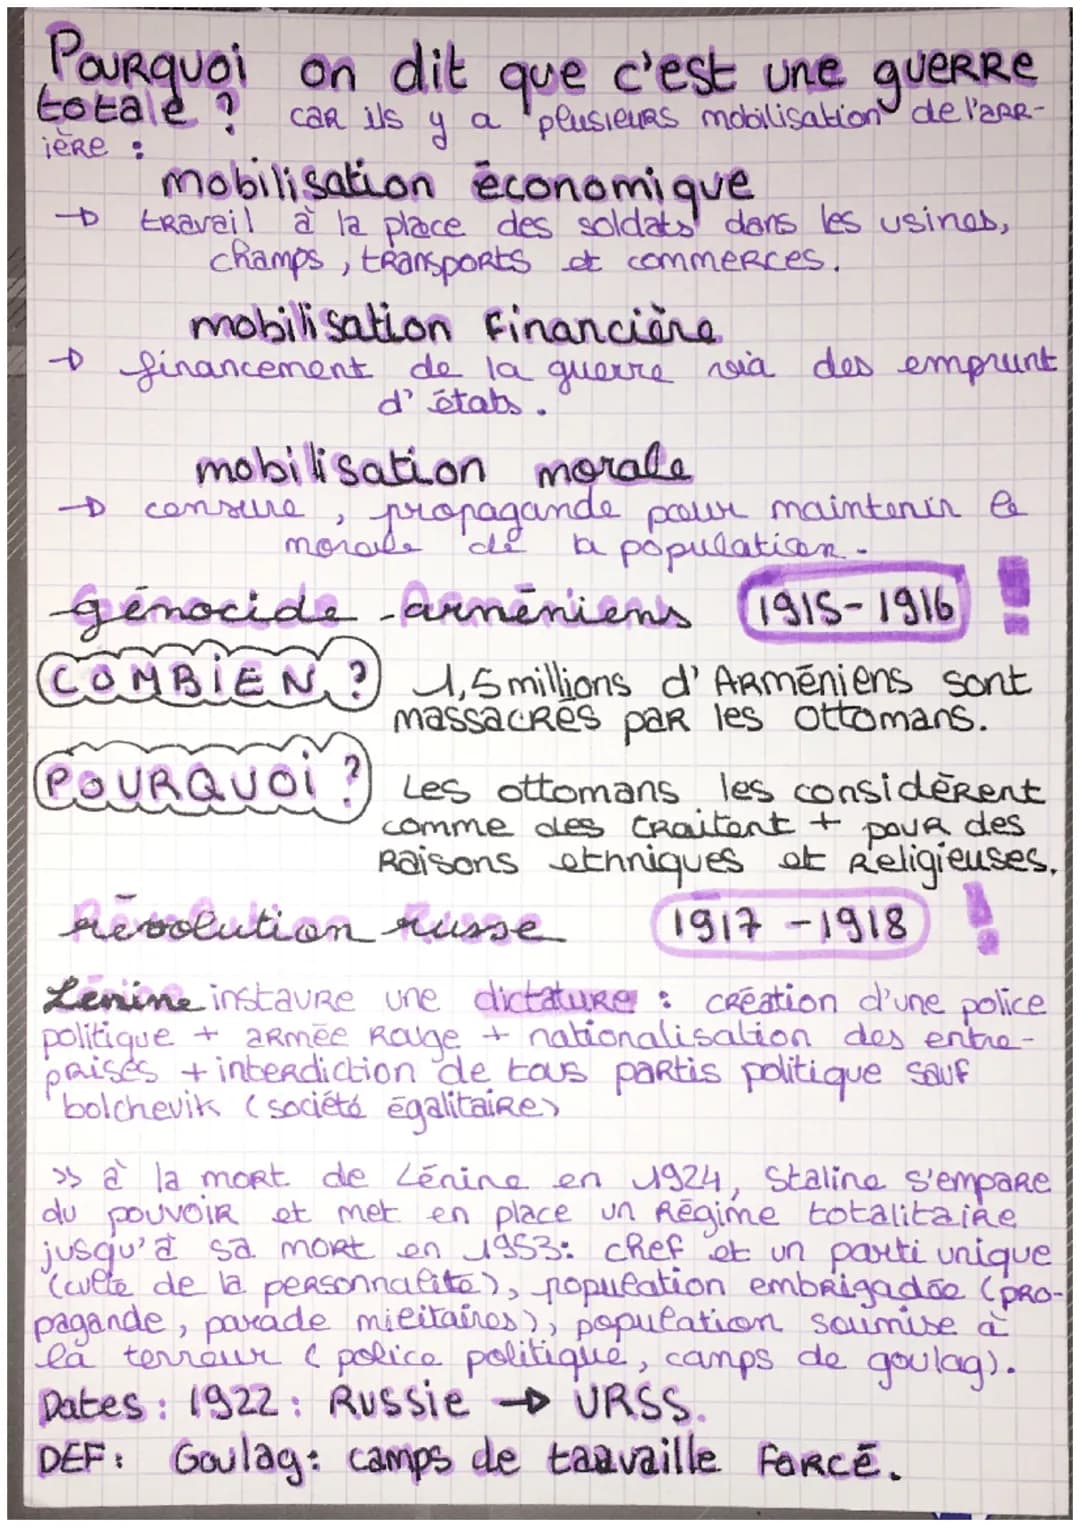 Pourquoi on dit que c'est une guerre
totale ? car ils y a plusieurs mobilisation de l'arr-
ière :
mobilisation économique
→ travail à la place des soldats dans les usines,
champs, transports et commerces.
mobilisation financière
→ financement de la guerre via des emprunt
d'états.
mobilisation morale
→ censure, propagande pour maintenir le
morale de la population.
génocide arméniens 1915-1916 !
COMBIEN ? 1,5 millions d'Arméniens sont
massacrés par les Ottomans.
POURQUOI ? Les ottomans les considèrent
comme des traitent + pour des
raisons ethniques et religieuses.
révolution russe 1917 - 1918 !
Lenine instaure une dictature : création d'une police
politique + armée rouge + nationalisation des entre-
prises + interdiction de tous partis politique sauf
bolchevik (société égalitaire)
>> à la mort de Lénine en 1924, Staline s'empare
du pouvoir et met en place un régime totalitaire
jusqu'à sa mort en 1953: chef et un parti unique
(culte de la personnalité), population embrigadée (pro-
pagande, parade militaires), population soumise à
la terreur (police politique, camps de goulag).
Dates : 1922 : Russie → URSS.
DEF : Goulag : camps de taavaille forcé.